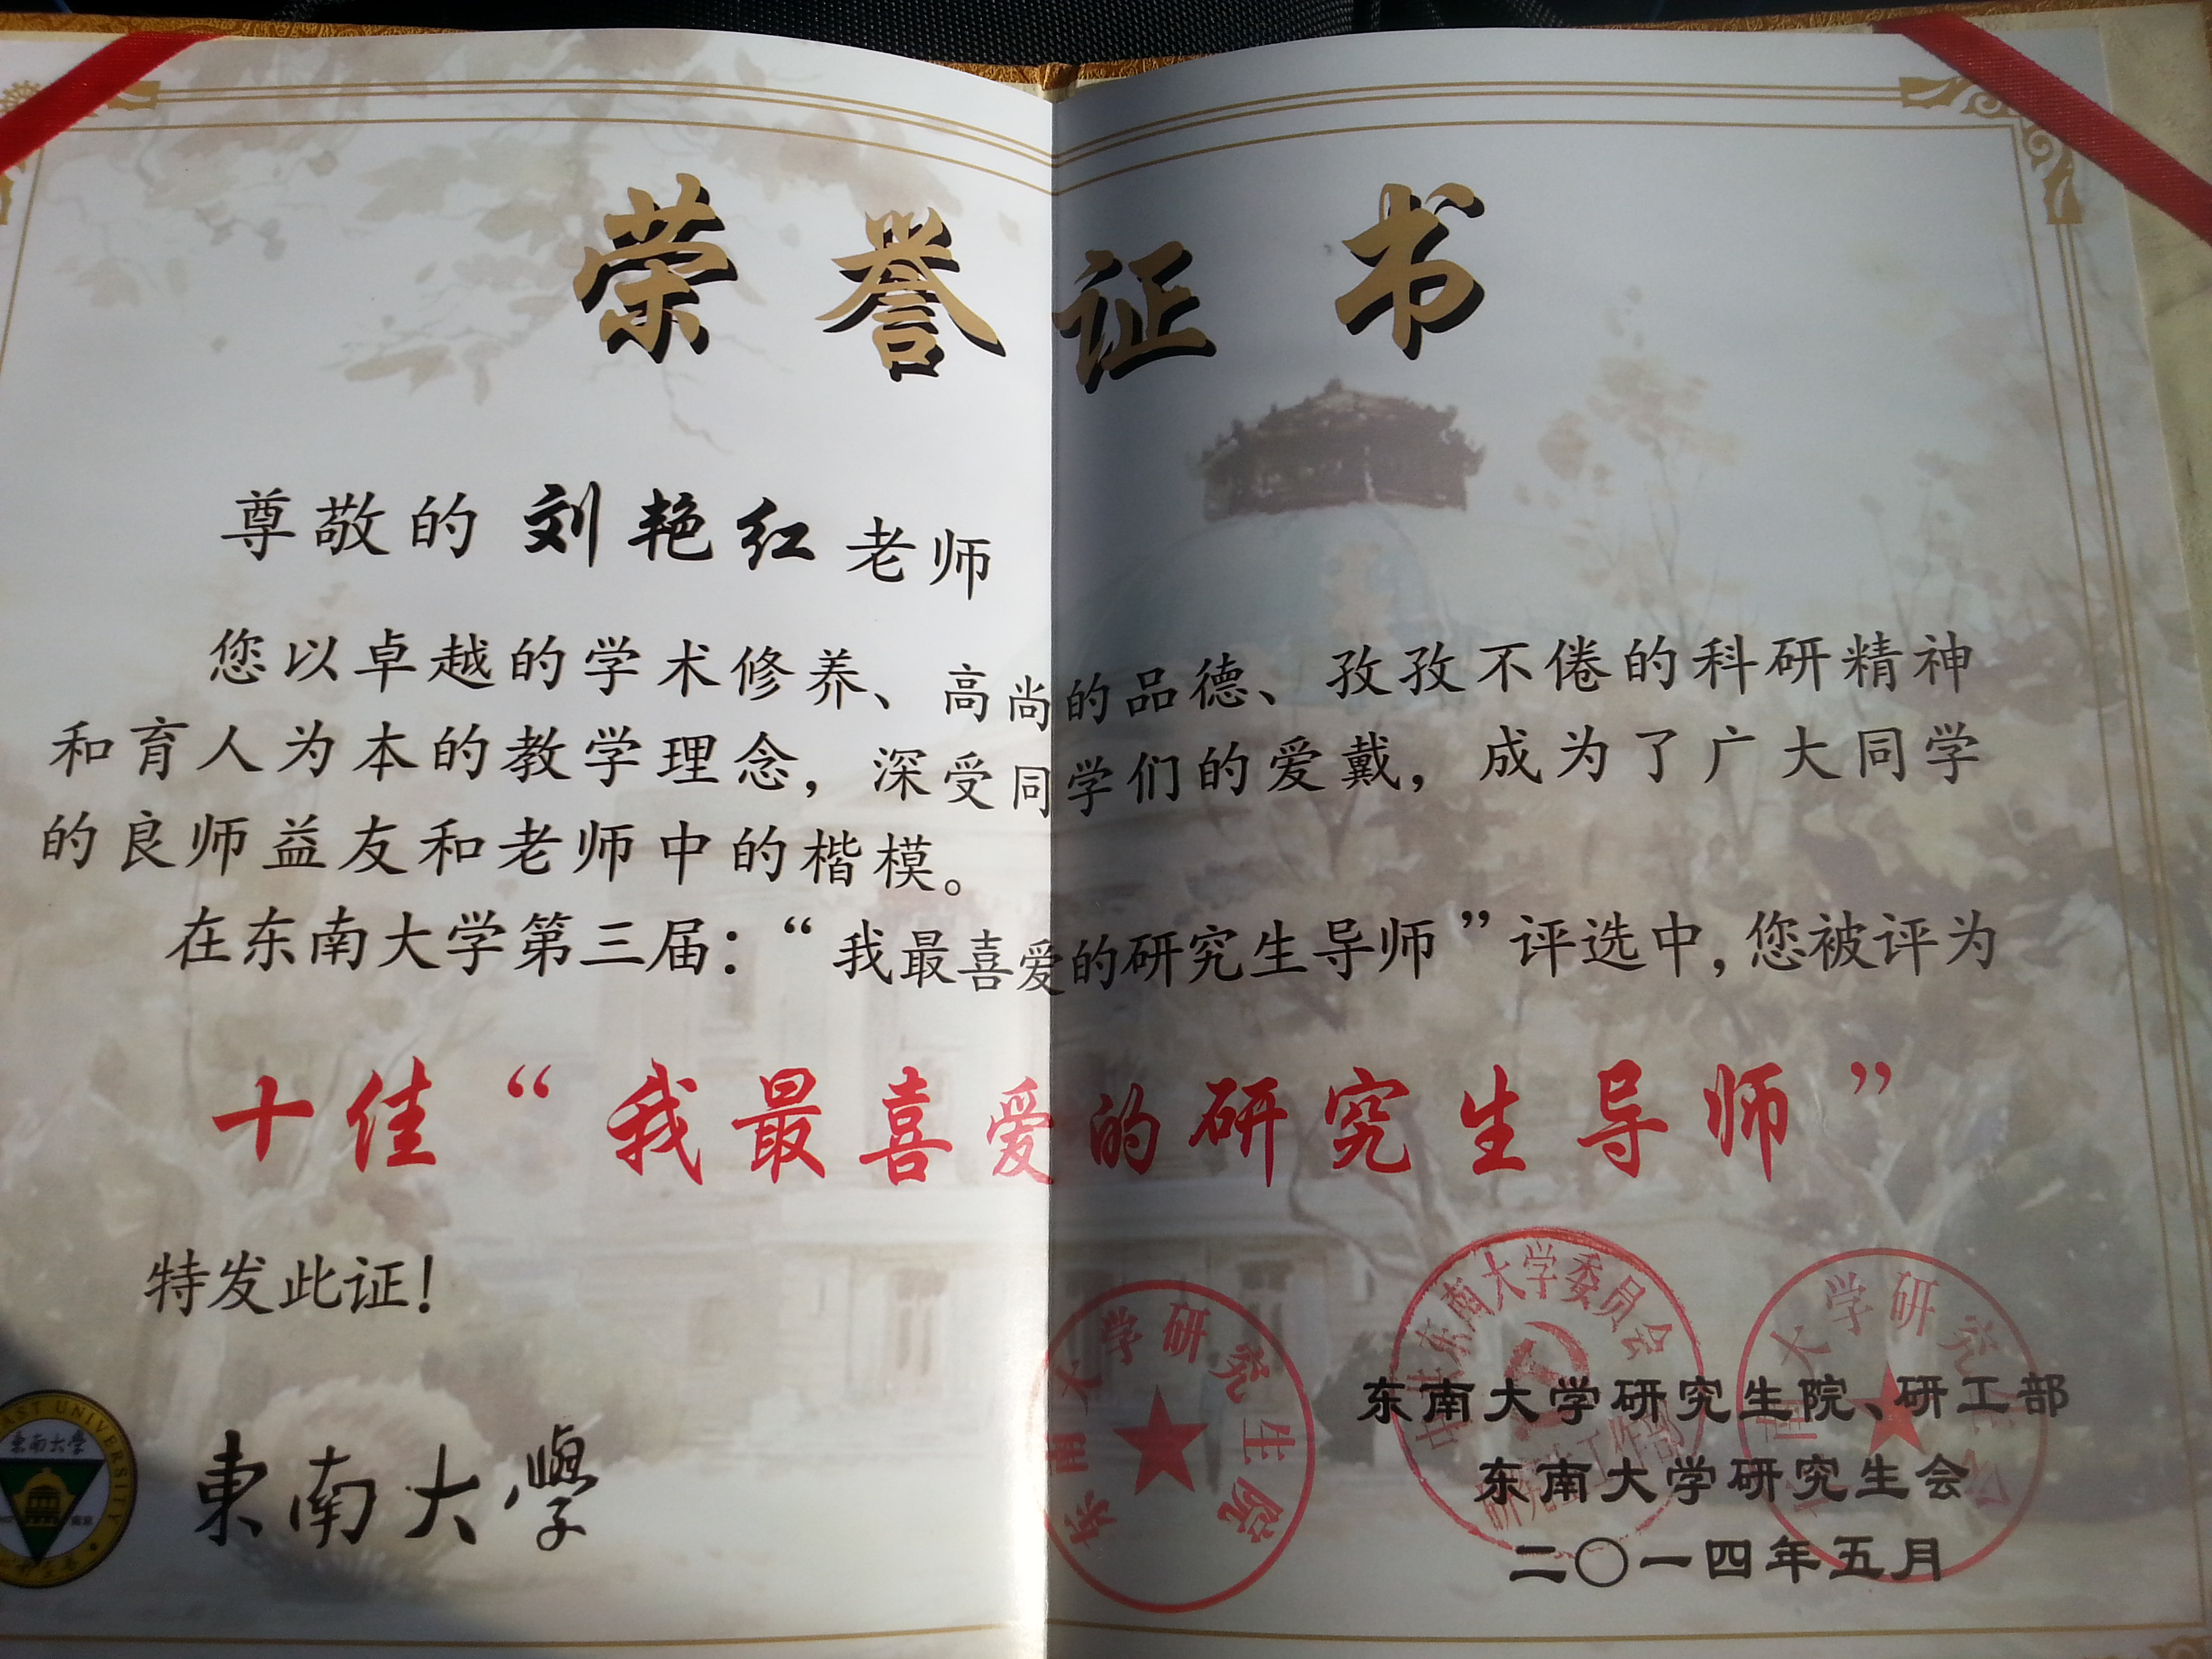 荣誉证书
尊敬的刘艳红老师
您以卓越的学术修养、高尚的品德、孜孜不倦的科研精神
和育人为本的教学理念，深受同学们的爱戴，成为了广大同学
的良师益友和老师中的楷模。
在东南大学第三届：“我最喜爱的研究生导师”评选中，您被评为
十佳“我最喜爱的研究生导师”
特发此证！
東南大學
东南大学研究生院、研工部
东南大学研究生会
二〇一四年五月
东南大学研究生院
中共东南大学委员会
研究生工作部
南大学研究生会
EAST UNIVERSITY
東南大學